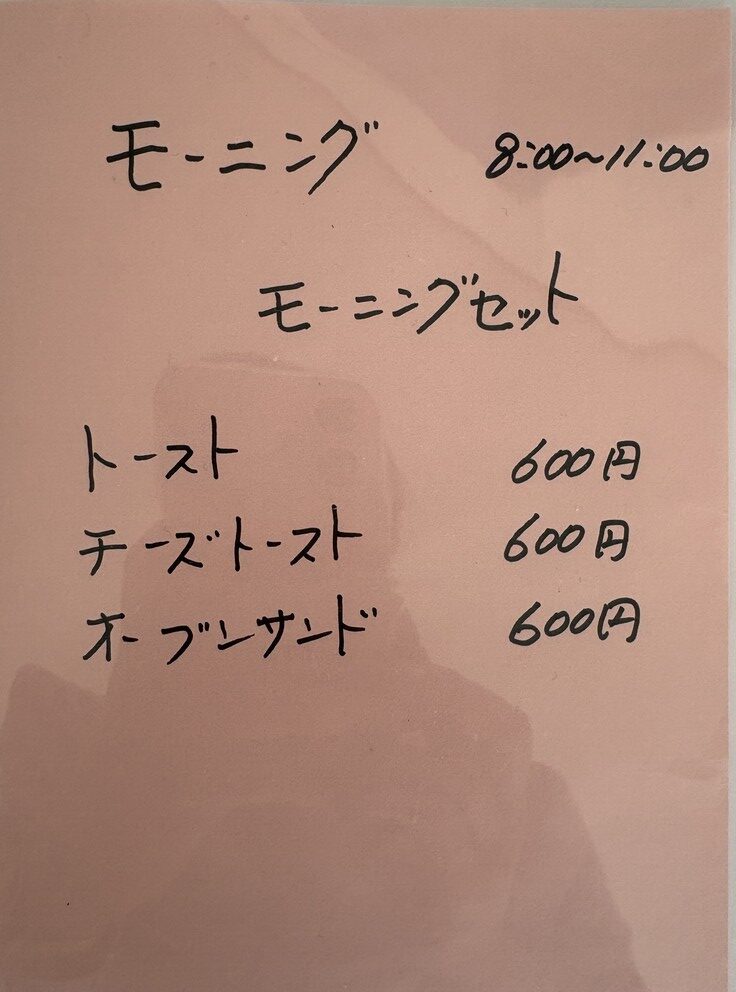 モーニング 8:00~11:00
モーニングセット
トースト 600円
チーズトースト 600円
オーブンサンド 600円